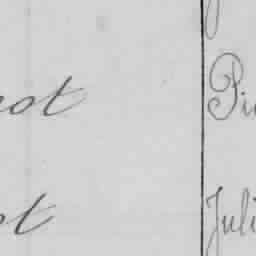 not Pi
ot Juli